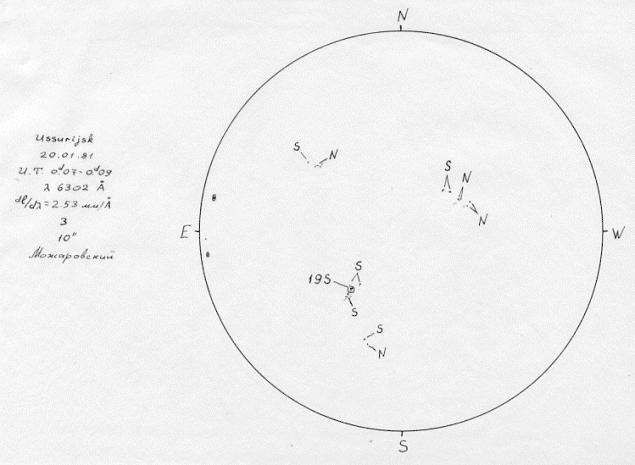 N
Ussurijsk
20.01.81
U.T. 0ᵈ.07-0ᵈ.09
λ 6302 Å
dl/dλ = 2.53 мм/Å
3
10"
Можаровский
S N
S
N
N
E
W
S
19S
S
S
N
S